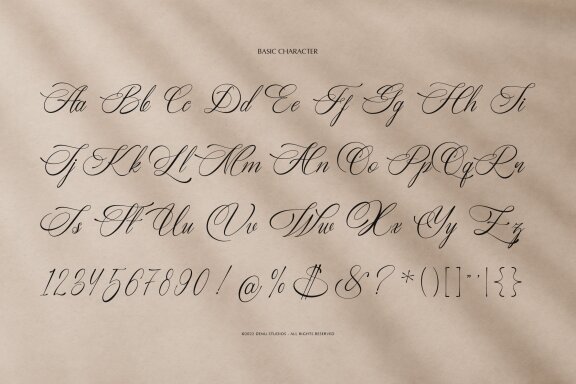 BASIC CHARACTER
Aa Bb Cc Dd Ee Ff Gg Hh Ii
Jj Kk Ll Mm Nn Oo Pp Qq Rr
Ss Tt Uu Vv Ww Xx Yy Zz
1234567890! @ % $ & ? * () [] "' | {}
©2022 DENU STUDIOS - ALL RIGHTS RESERVED